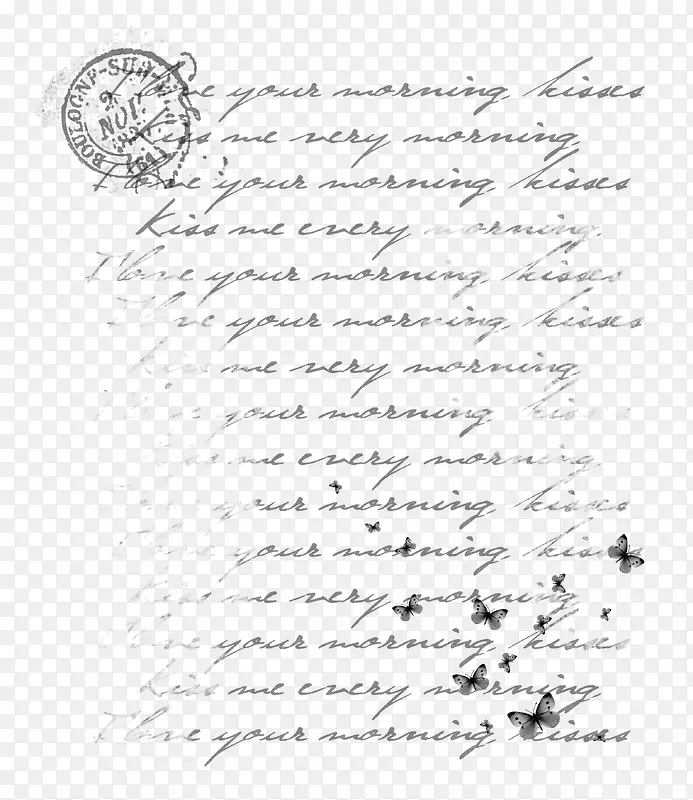 BOULOGNE-SUR-
NOV
I love your morning kisses
Kiss me very morning
I love your morning kisses
Kiss me every morning
I love your morning kisses
I love your morning kisses
Kiss me very morning
I love your morning kisses
Kiss me every morning
I love your morning kisses
I love your morning kisses
Kiss me very morning
I love your morning kisses
Kiss me every morning
I love your morning kisses